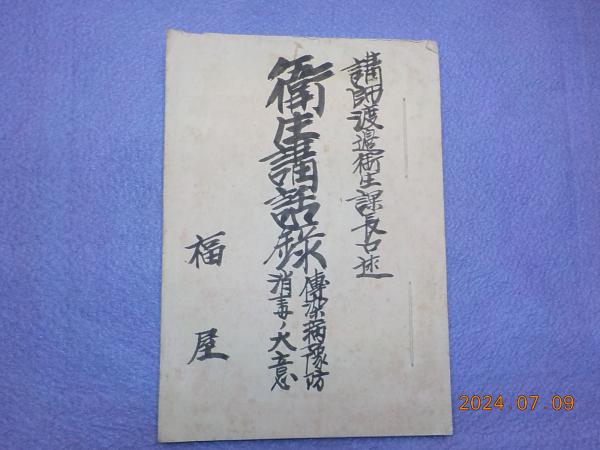 講師渡邉衛生課長口述
衛生講話録
傳染病豫防
消毒ノ大意
福屋
2024.07.09